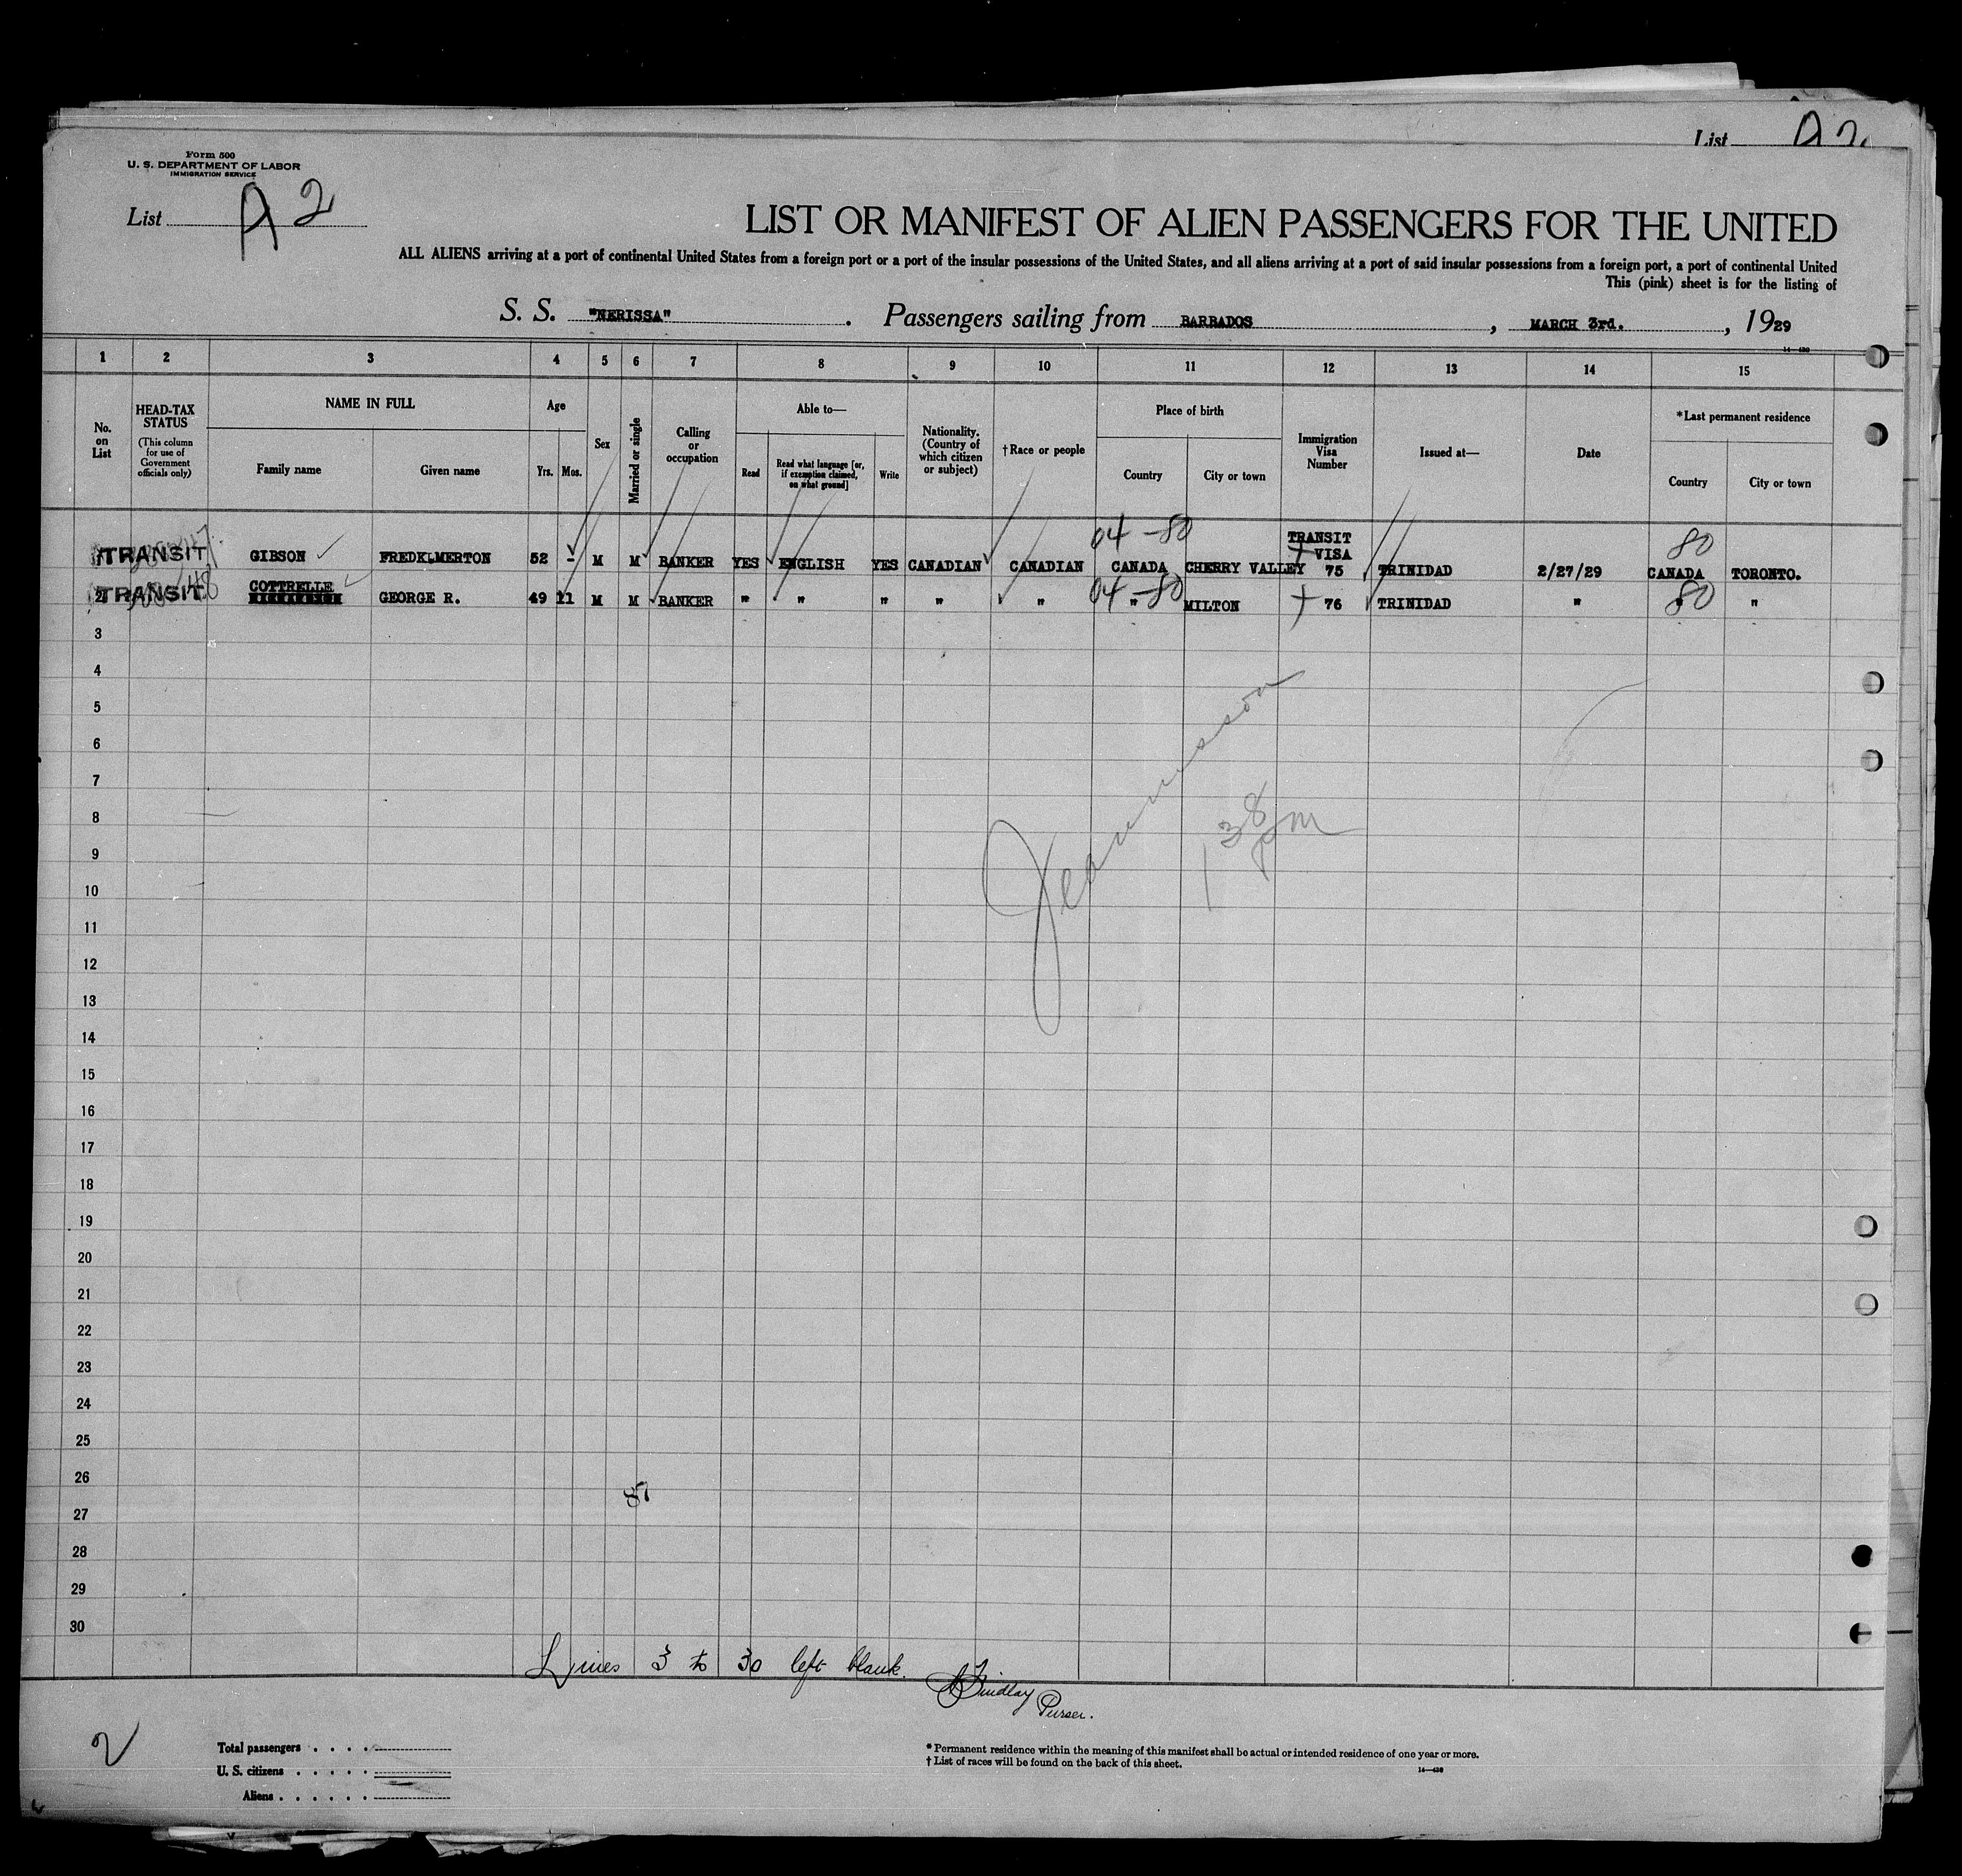 List A2
Form 500
U. S. DEPARTMENT OF LABOR
IMMIGRATION SERVICE
List A2
LIST OR MANIFEST OF ALIEN PASSENGERS FOR THE UNITED
ALL ALIENS arriving at a port of continental United States from a foreign port or a port of the insular possessions of the United States, and all aliens arriving at a port of said insular possessions from a foreign port, a port of continental United
This (pink) sheet is for the listing of
S. S. "NERISSA" . Passengers sailing from BARBADOS , MARCH 3rd. , 1929
14—430
1 2 3 4 5 6 7 8 9 10 11 12 13 14 15
No. on List
HEAD-TAX STATUS
(This column for use of Government officials only)
NAME IN FULL
Family name Given name
Age
Yrs. Mos.
Sex
Married or single
Calling or occupation
Able to—
Read
Read what language [or, if exemption claimed, on what ground]
Write
Nationality. (Country of which citizen or subject)
†Race or people
Place of birth
Country City or town
Immigration Visa Number
Issued at—
Date
*Last permanent residence
Country City or town
04 -80 TRANSIT 80
1 TRANSIT GIBSON FREDK.MERTON 52 - M M BANKER YES ENGLISH YES CANADIAN CANADIAN CANADA CHERRY VALLEY VISA 75 TRINIDAD 2/27/29 CANADA TORONTO.
04 -80 80
2 TRANSIT COTTRELLE GEORGE R. 49 11 M M BANKER " " " " " " MILTON 76 TRINIDAD " " "
3
4
5
6
7
8
9
10
11
12
13
14
15
16
17
18
19
20
21
22
23
24
25
26
27
28
29
30
Lines 3 to 30 left blank.
Findlay
Purser.
2
Total passengers
U. S. citizens
Aliens
* Permanent residence within the meaning of this manifest shall be actual or intended residence of one year or more.
† List of races will be found on the back of this sheet.
14—430